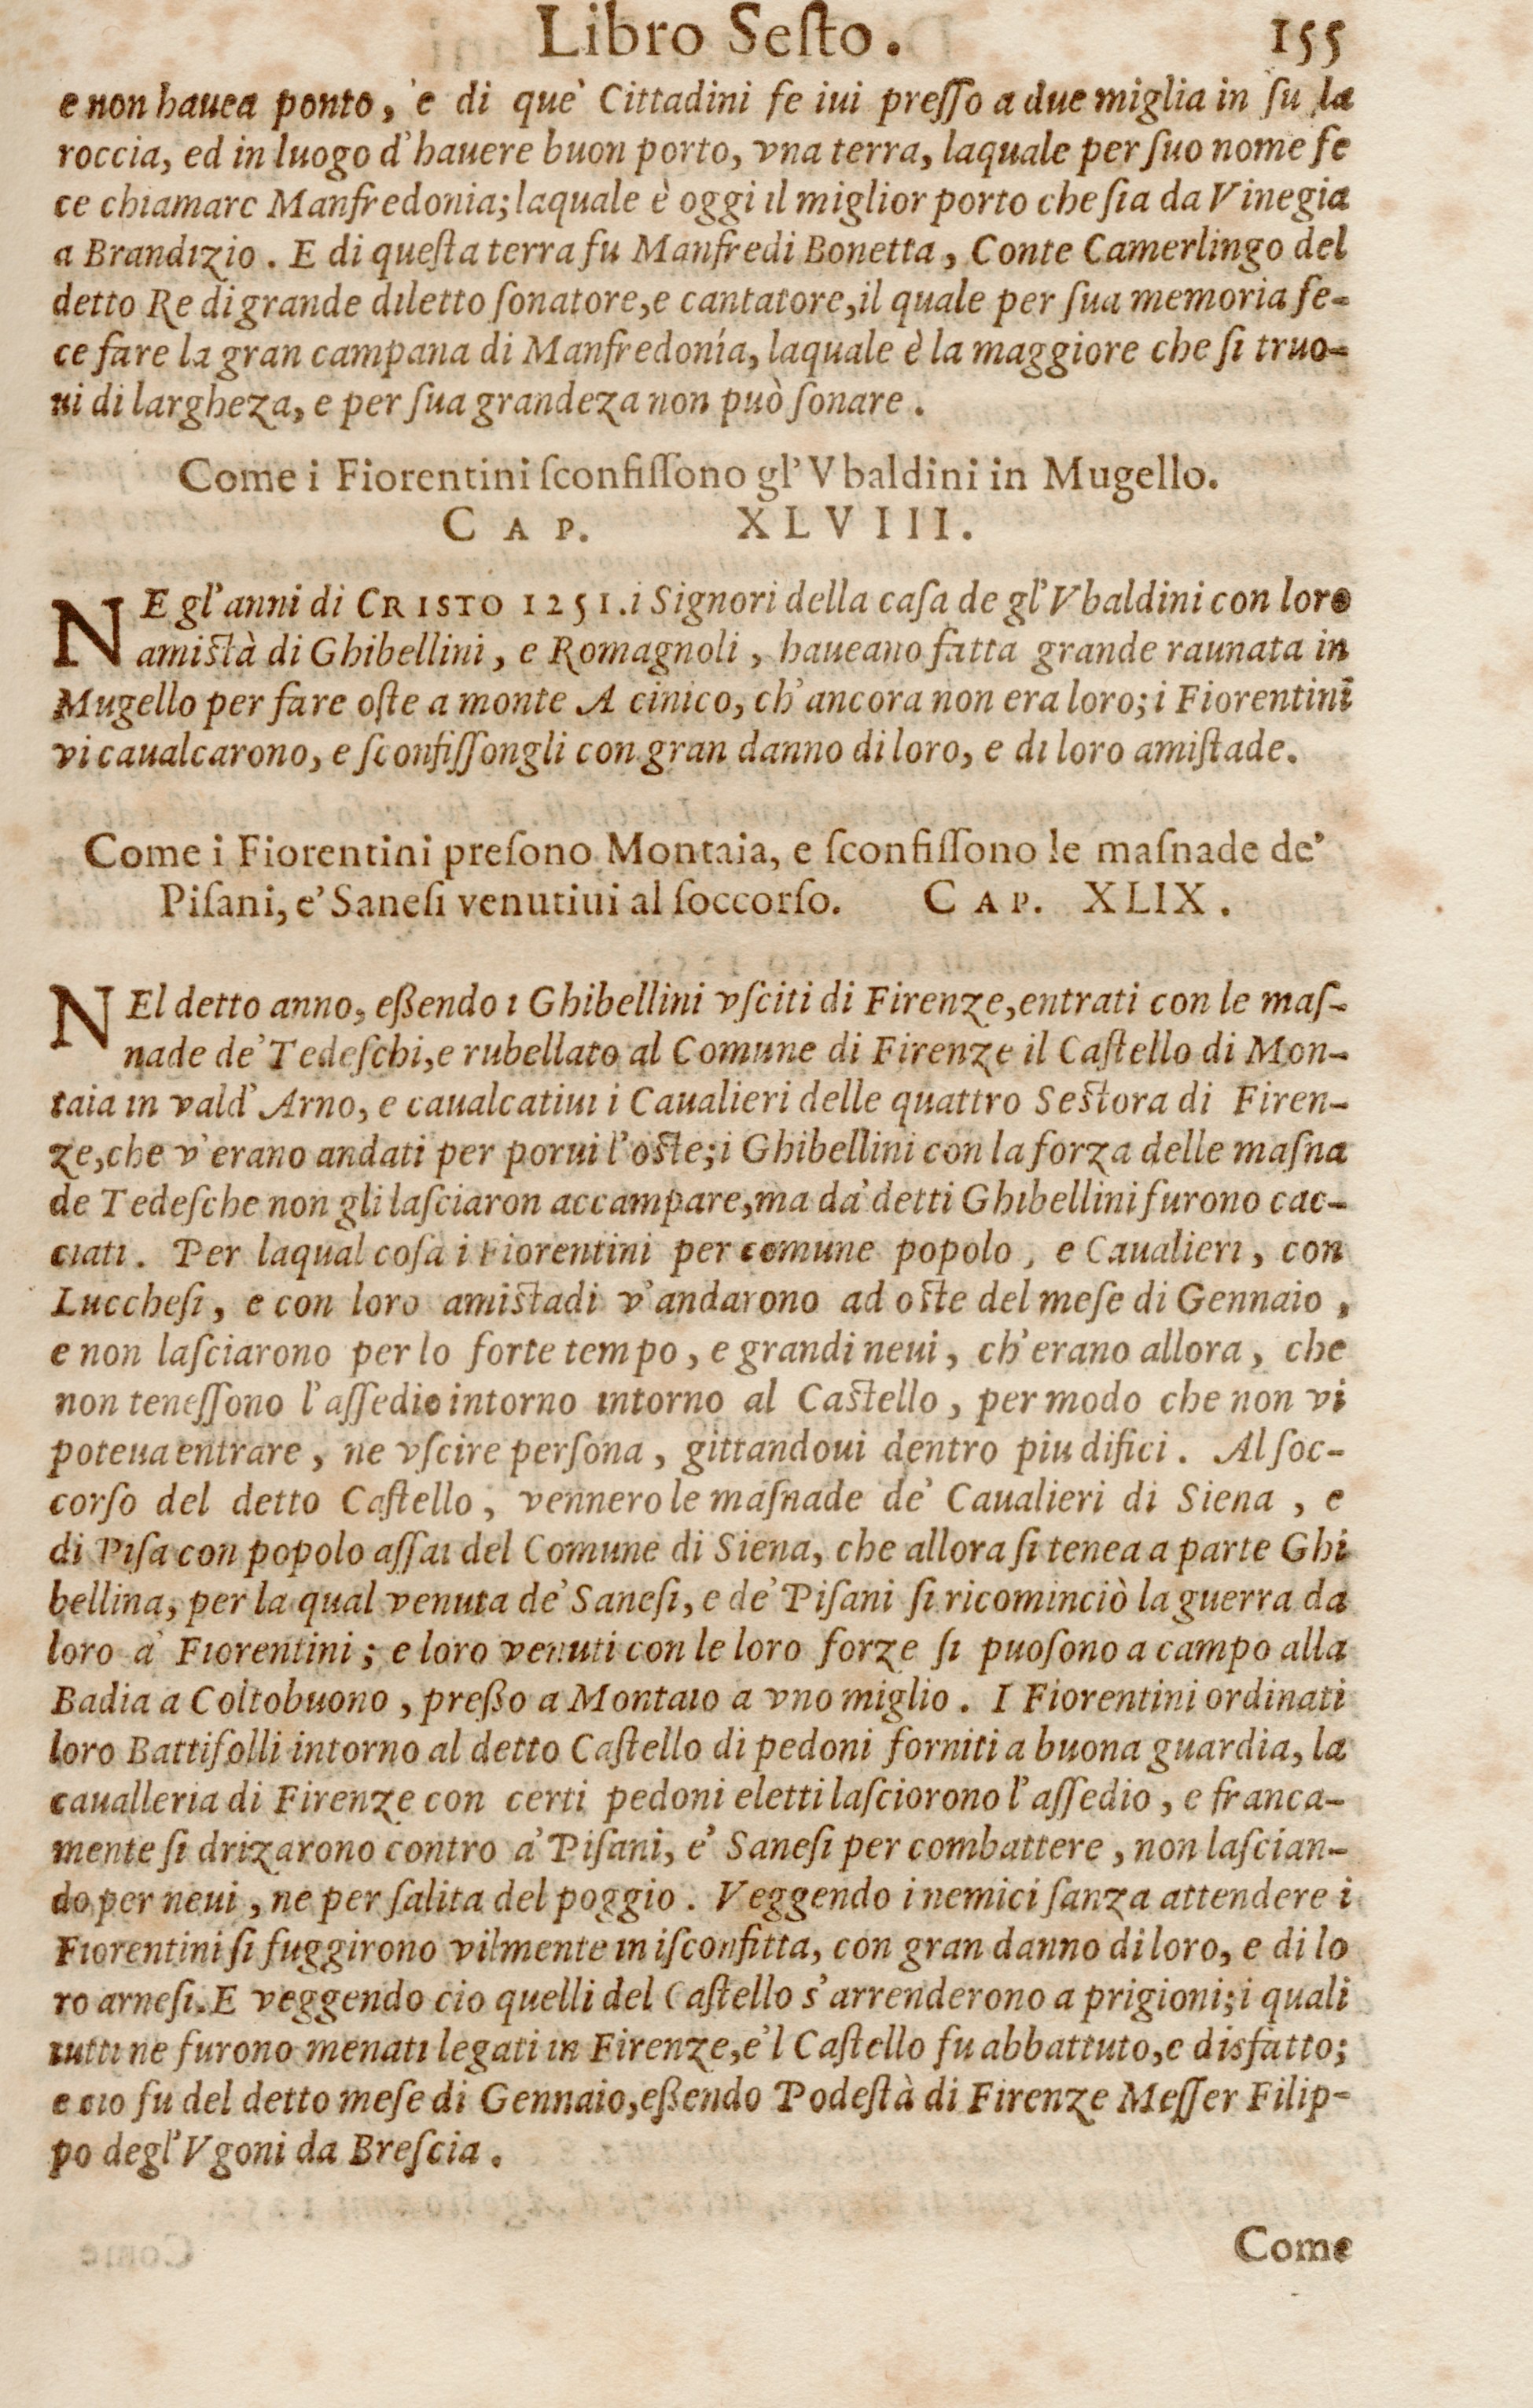 Libro Seſto. 155
e non hauea ponto, e di que' Cittadini fe iui preſſo a due miglia in ſu la
roccia, ed in luogo d'hauere buon porto, vna terra, laquale per ſuo nome fe
ce chiamarc Manfredonia; laquale è oggi il miglior porto che ſia da Vinegia
a Brandizio. E di queſta terra fu Manfredi Bonetta, Conte Camerlingo del
detto Re di grande diletto ſonatore, e cantatore, il quale per ſua memoria fe-
ce fare la gran campana di Manfredonía, laquale è la maggiore che ſi truo-
ui di largheza, e per ſua grandeza non può ſonare.
Come i Fiorentini ſconfiſſono gl'Vbaldini in Mugello.
CAP. XLVIII.
NE gl'anni di CRISTO 1251. i Signori della caſa de gl'Vbaldini con loro
amiſtà di Ghibellini, e Romagnoli, haueano fatta grande raunata in
Mugello per fare oſte a monte A cinico, ch'ancora non era loro; i Fiorentini
vi caualcarono, e ſconfiſſongli con gran danno di loro, e di loro amiſtade.
Come i Fiorentini preſono Montaia, e ſconfiſſono le maſnade de'
Piſani, e' Saneſi venutiui al ſoccorſo. CAP. XLIX.
NEl detto anno, eßendo i Ghibellini vſciti di Firenze, entrati con le maſ-
nade de' Tedeſchi, e rubellato al Comune di Firenze il Caſtello di Mon-
taia in vald'Arno, e caualcatiui i Caualieri delle quattro Seſtora di Firen-
ze, che v'erano andati per porui l'oſte; i Ghibellini con la forza delle maſna
de Tedeſche non gli laſciaron accampare, ma da' detti Ghibellini furono cac-
ciati. Per laqual coſa i Fiorentini per comune popolo, e Caualieri, con
Luccheſi, e con loro amiſtadi v'andarono ad oſte del meſe di Gennaio,
e non laſciarono per lo forte tempo, e grandi neui, ch'erano allora, che
non teneſſono l'aſſedio intorno intorno al Caſtello, per modo che non vi
poteua entrare, ne vſcire perſona, gittandoui dentro piu difici. Al ſoc-
corſo del detto Caſtello, vennero le maſnade de' Caualieri di Siena, e
di Piſa con popolo aſſai del Comune di Siena, che allora ſi tenea a parte Ghi
bellina, per la qual venuta de' Saneſi, e de' Piſani ſi ricominciò la guerra da
loro a' Fiorentini; e loro venuti con le loro forze ſi puoſono a campo alla
Badia a Coltobuono, preßo a Montaio a vno miglio. I Fiorentini ordinati
loro Battifolli intorno al detto Caſtello di pedoni forniti a buona guardia, la
caualleria di Firenze con certi pedoni eletti laſciorono l'aſſedio, e franca-
mente ſi drizarono contro a' Piſani, e' Saneſi per combattere, non laſcian-
do per neui, ne per ſalita del poggio. Veggendo i nemici ſanza attendere i
Fiorentini ſi fuggirono vilmente in iſconfitta, con gran danno di loro, e di lo
ro arneſi. E veggendo cio quelli del Caſtello s'arrenderono a prigioni; i quali
tutti ne furono menati legati in Firenze, e'l Caſtello fu abbattuto, e disfatto;
e cio fu del detto meſe di Gennaio, eßendo Podeſtà di Firenze Meſſer Filip-
po degl'Vgoni da Breſcia.
Come